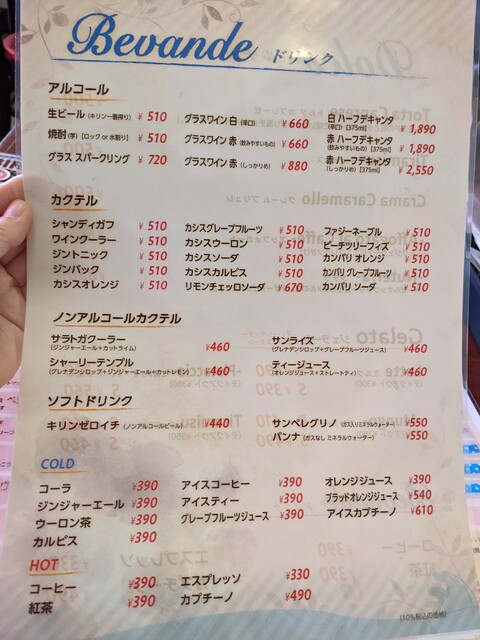 Bevande ドリンク
アルコール
生ビール (キリン一番搾り) ¥ 510
焼酎(芋) [ロック or 水割り] ¥ 510
グラス スパークリング ¥ 720
グラスワイン 白 (辛口) ¥ 660
グラスワイン 赤 (飲みやすいもの) ¥ 660
グラスワイン 赤 (しっかりめ) ¥ 880
白 ハーフデキャンタ
(辛口) [375ml] ¥ 1,890
赤 ハーフデキャンタ
(飲みやすいもの) [375ml] ¥ 1,890
赤 ハーフデキャンタ
(しっかりめ) [375ml] ¥ 2,550
カクテル
シャンディガフ ¥ 510
ワインクーラー ¥ 510
ジントニック ¥ 510
ジンバック ¥ 510
カシスオレンジ ¥ 510
カシスグレープフルーツ ¥ 510
カシスウーロン ¥ 510
カシスソーダ ¥ 510
カシスカルピス ¥ 510
リモンチェッロソーダ ¥ 670
ファジーネーブル ¥ 510
ピーチツリーフィズ ¥ 510
カンパリ オレンジ ¥ 510
カンパリ グレープフルーツ ¥ 510
カンパリ ソーダ ¥ 510
ノンアルコールカクテル
サラトガクーラー ¥460
(ジンジャーエール+カットライム)
シャーリーテンプル ¥460
(グレナデンシロップ+ジンジャーエール+カットレモン)
サンライズ ¥460
(グレナデンシロップ+グレープフルーツジュース)
ティージュース ¥460
(オレンジジュース+ストレートティ)
ソフトドリンク
キリンゼロイチ (ノンアルコールビール) ¥440
サンペレグリノ (ガス入りミネラルウォーター) ¥550
パンナ (ガスなし ミネラルウォーター) ¥550
COLD
コーラ ¥390
ジンジャーエール ¥390
ウーロン茶 ¥390
カルピス ¥390
アイスコーヒー ¥390
アイスティー ¥390
グレープフルーツジュース ¥390
オレンジジュース ¥390
ブラッドオレンジジュース ¥540
アイスカプチーノ ¥610
HOT
コーヒー ¥390
紅茶 ¥390
エスプレッソ ¥330
カプチーノ ¥490
(10%税込の価格)